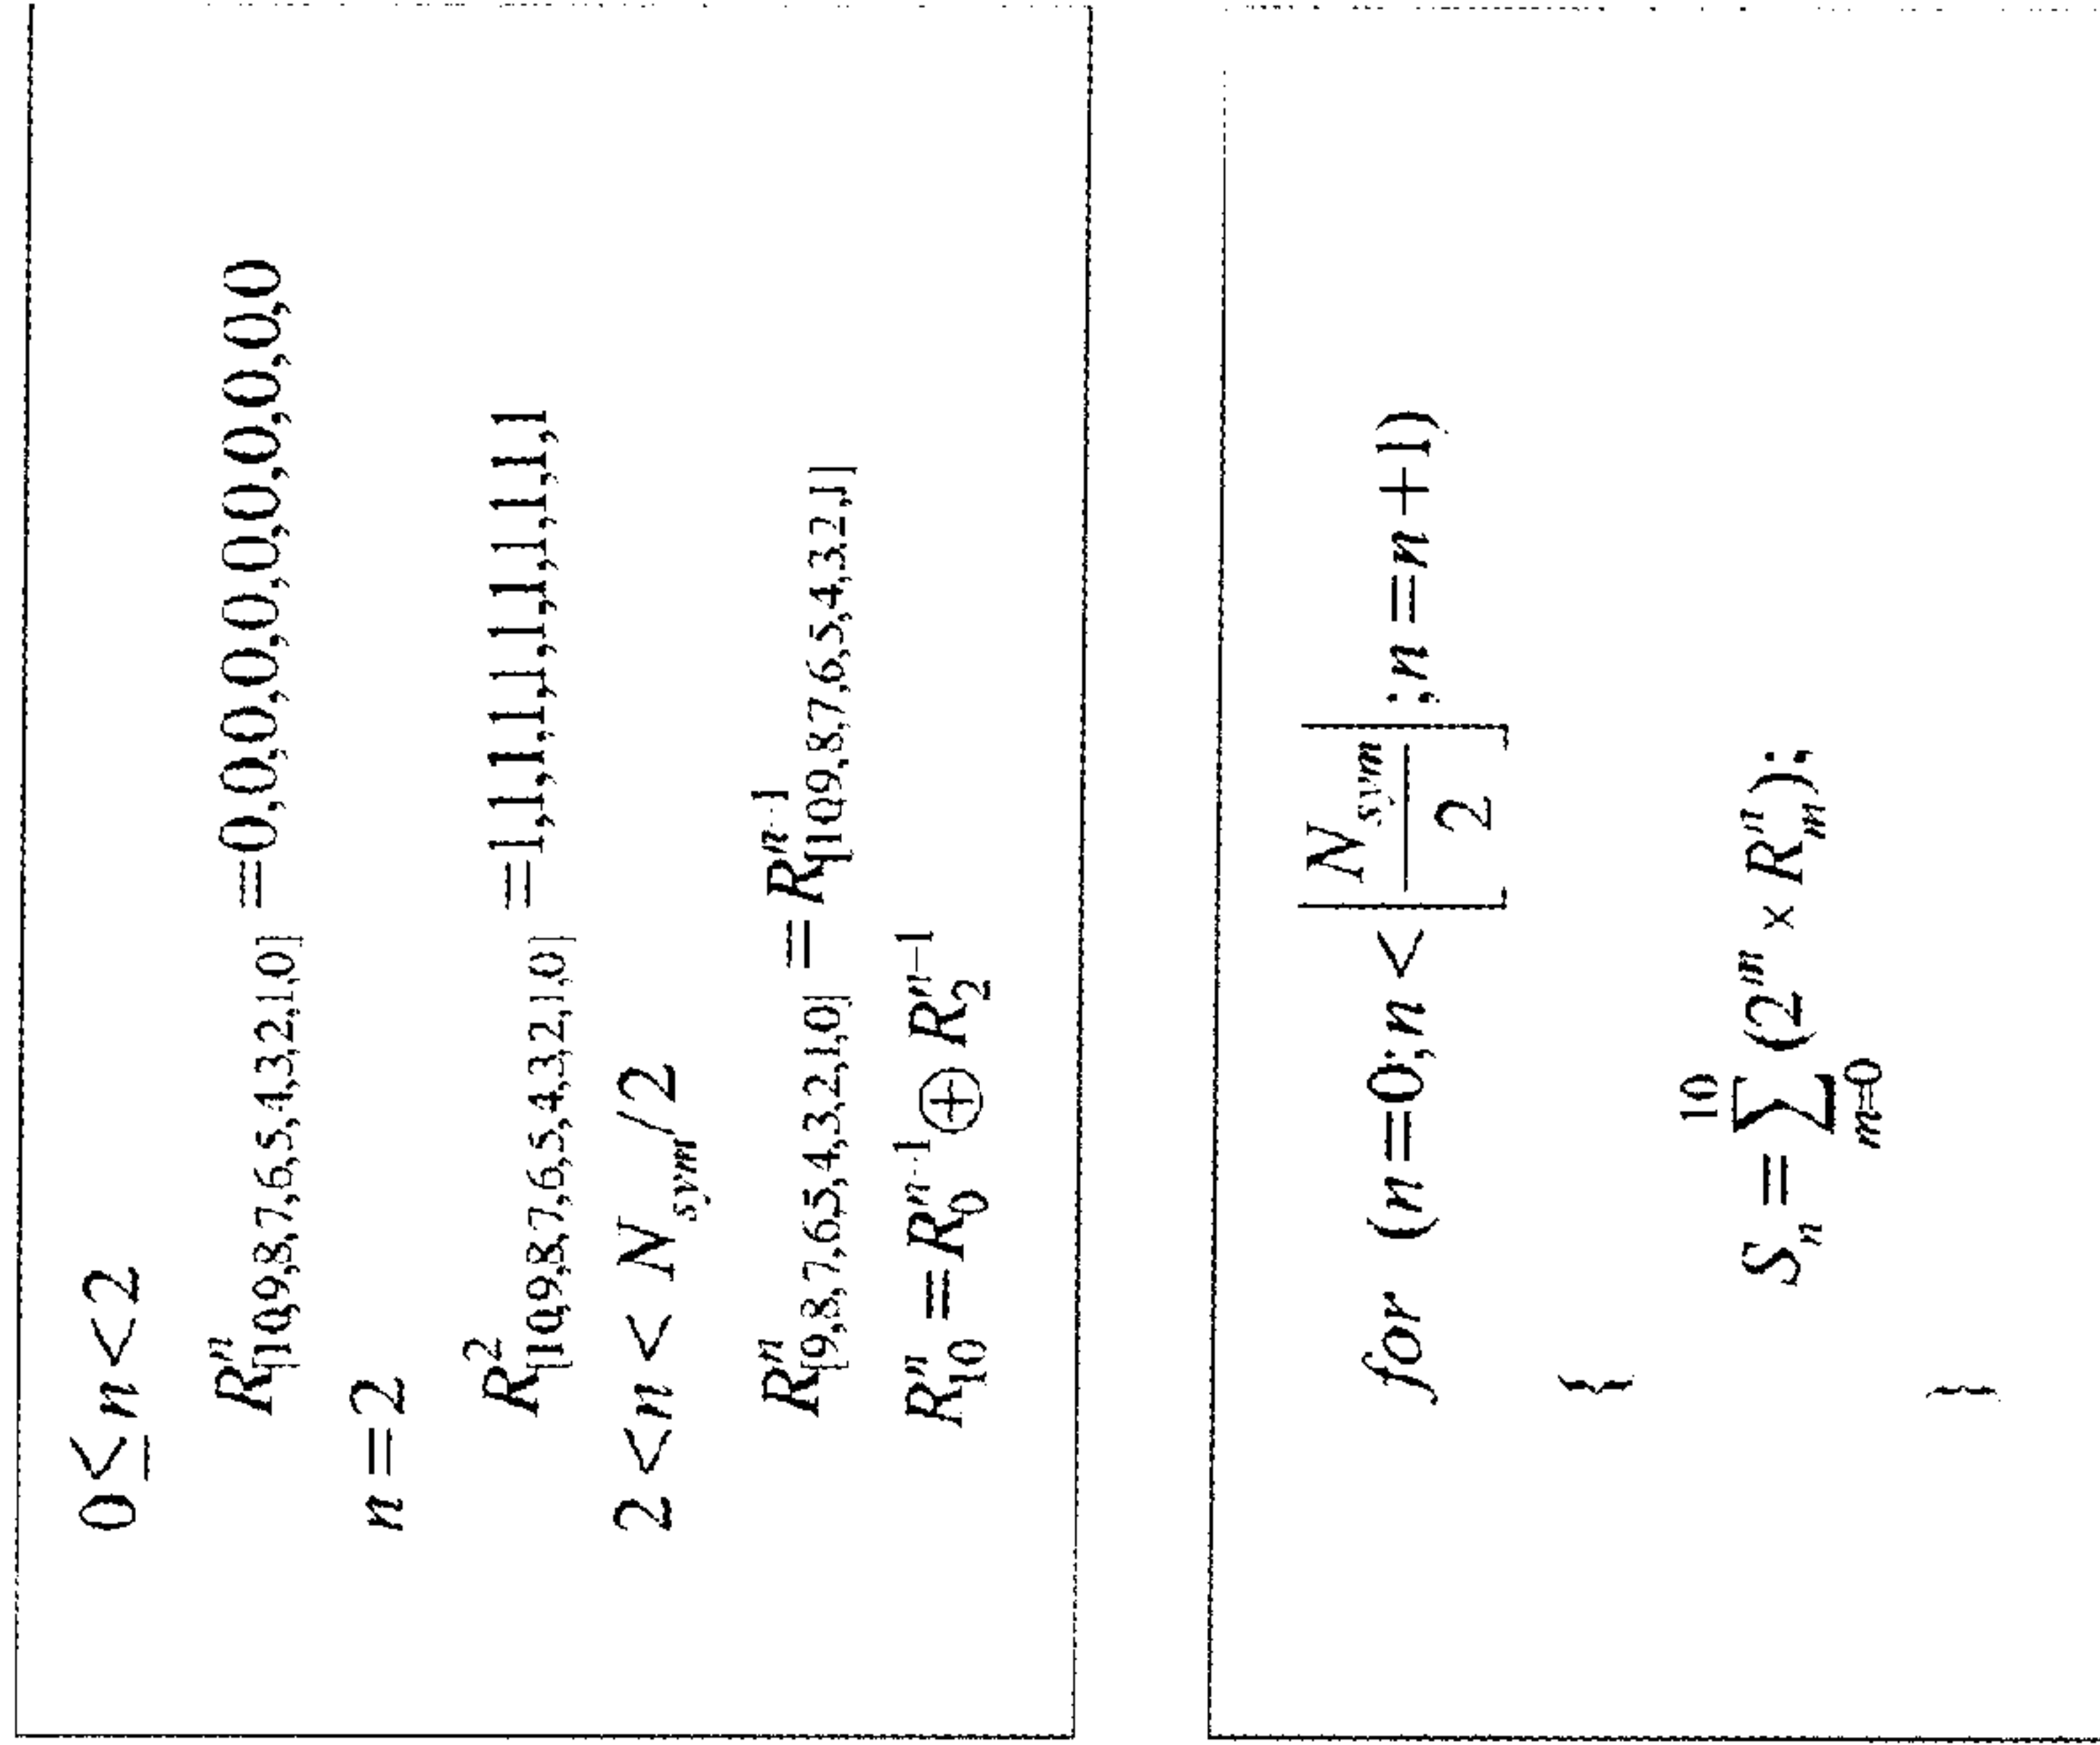 0≤n<2
Rⁿ[10,9,8,7,6,5,4,3,2,1,0] =0,0,0,0,0,0,0,0,0,0,0
n=2
R²[10,9,8,7,6,5,4,3,2,1,0] =1,1,1,1,1,1,1,1,1,1,1
2<n< N_sym/2
Rⁿ[9,8,7,6,5,4,3,2,1,0] =Rⁿ⁻¹[10,9,8,7,6,5,4,3,2,1]
Rⁿ₁₀ =Rⁿ⁻¹₀ ⊕ Rⁿ⁻¹₂
for (n=0;n<⌊N_sym/2⌋;n=n+1)
{
Sₙ = ∑_{m=0}^{10} (2^m × Rⁿ_m);
}